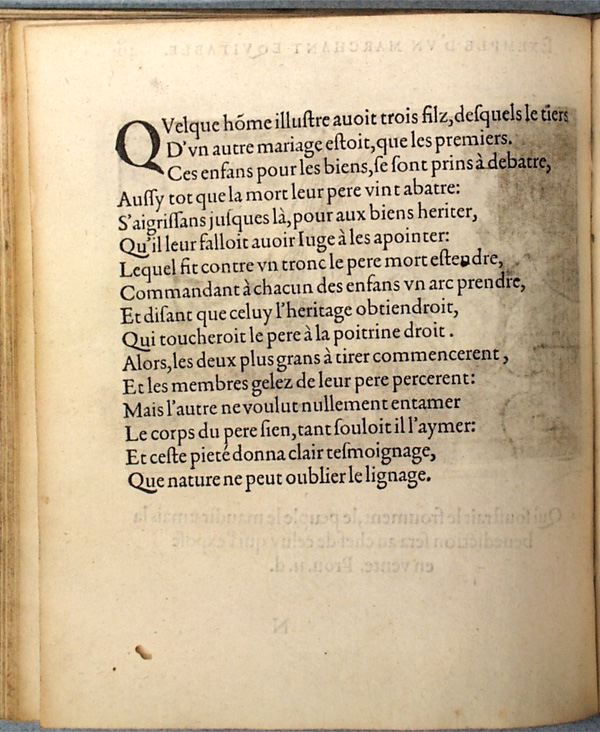 QVelque hõme illuſtre auoit trois filz, deſquels le tiers
D'vn autre mariage eſtoit, que les premiers.
Ces enfans pour les biens, ſe ſont prins à debatre,
Auſſy tot que la mort leur pere vint abatre:
S'aigriſſans juſques là, pour aux biens heriter,
Qu'il leur falloit auoir Iuge à les apointer:
Lequel fit contre vn tronc le pere mort eſtendre,
Commandant à chacun des enfans vn arc prendre,
Et diſant que celuy l'heritage obtiendroit,
Qui toucheroit le pere à la poitrine droit.
Alors, les deux plus grans à tirer commencerent,
Et les membres gelez de leur pere percerent:
Mais l'autre ne voulut nullement entamer
Le corps du pere ſien, tant ſouloit il l'aymer:
Et ceſte pieté donna clair teſmoignage,
Que nature ne peut oublier le lignage.